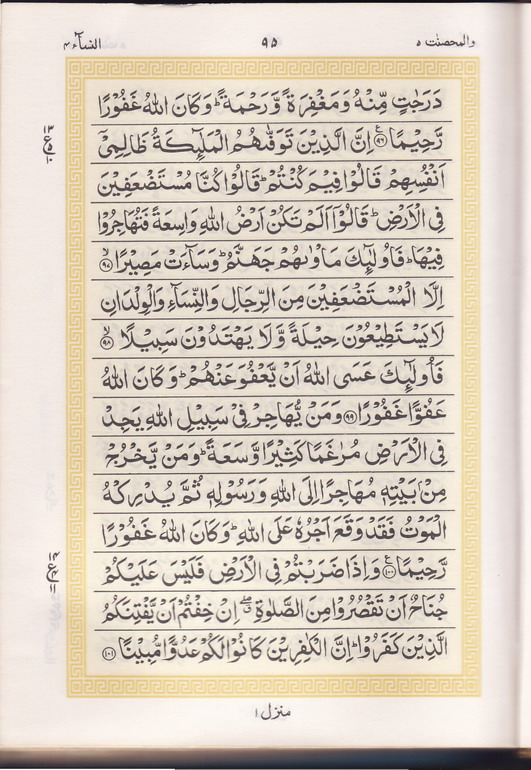 والمحصنٰت ٥ ٩٥ النسآء ٤
دَرَجٰتٍ مِّنْهُ وَمَغْفِرَةً وَّرَحْمَةً ؕ وَكَانَ اللّٰهُ غَفُوْرًا
رَّحِيْمًا ﴿٩٦﴾ ع اِنَّ الَّذِيْنَ تَوَفّٰىهُمُ الْمَلٰٓئِكَةُ ظَالِمِىْٓ
اَنْفُسِهِمْ قَالُوْا فِيْمَ كُنْتُمْ ؕ قَالُوْا كُنَّا مُسْتَضْعَفِيْنَ
فِى الْاَرْضِ ؕ قَالُوْٓا اَلَمْ تَكُنْ اَرْضُ اللّٰهِ وَاسِعَةً فَتُهَاجِرُوْا
فِيْهَا ؕ فَاُولٰٓئِكَ مَاْوٰىهُمْ جَهَنَّمُ ؕ وَسَآءَتْ مَصِيْرًا ۙ﴿٩٧﴾
اِلَّا الْمُسْتَضْعَفِيْنَ مِنَ الرِّجَالِ وَالنِّسَآءِ وَالْوِلْدَانِ
لَا يَسْتَطِيْعُوْنَ حِيْلَةً وَّلَا يَهْتَدُوْنَ سَبِيْلًا ۙ﴿٩٨﴾
فَاُولٰٓئِكَ عَسَى اللّٰهُ اَنْ يَّعْفُوَ عَنْهُمْ ؕ وَكَانَ اللّٰهُ
عَفُوًّا غَفُوْرًا ﴿٩٩﴾ وَمَنْ يُّهَاجِرْ فِىْ سَبِيْلِ اللّٰهِ يَجِدْ
فِى الْاَرْضِ مُرٰغَمًا كَثِيْرًا وَّسَعَةً ؕ وَمَنْ يَّخْرُجْ
مِنْۢ بَيْتِهٖ مُهَاجِرًا اِلَى اللّٰهِ وَرَسُوْلِهٖ ثُمَّ يُدْرِكْهُ
الْمَوْتُ فَقَدْ وَقَعَ اَجْرُهٗ عَلَى اللّٰهِ ؕ وَكَانَ اللّٰهُ غَفُوْرًا
رَّحِيْمًا ﴿١٠٠﴾ ع وَاِذَا ضَرَبْتُمْ فِى الْاَرْضِ فَلَيْسَ عَلَيْكُمْ
جُنَاحٌ اَنْ تَقْصُرُوْا مِنَ الصَّلٰوةِ ۖ اِنْ خِفْتُمْ اَنْ يَّفْتِنَكُمُ
الَّذِيْنَ كَفَرُوْا ؕ اِنَّ الْكٰفِرِيْنَ كَانُوْا لَكُمْ عَدُوًّا مُّبِيْنًا ﴿١٠١﴾
منزل ١